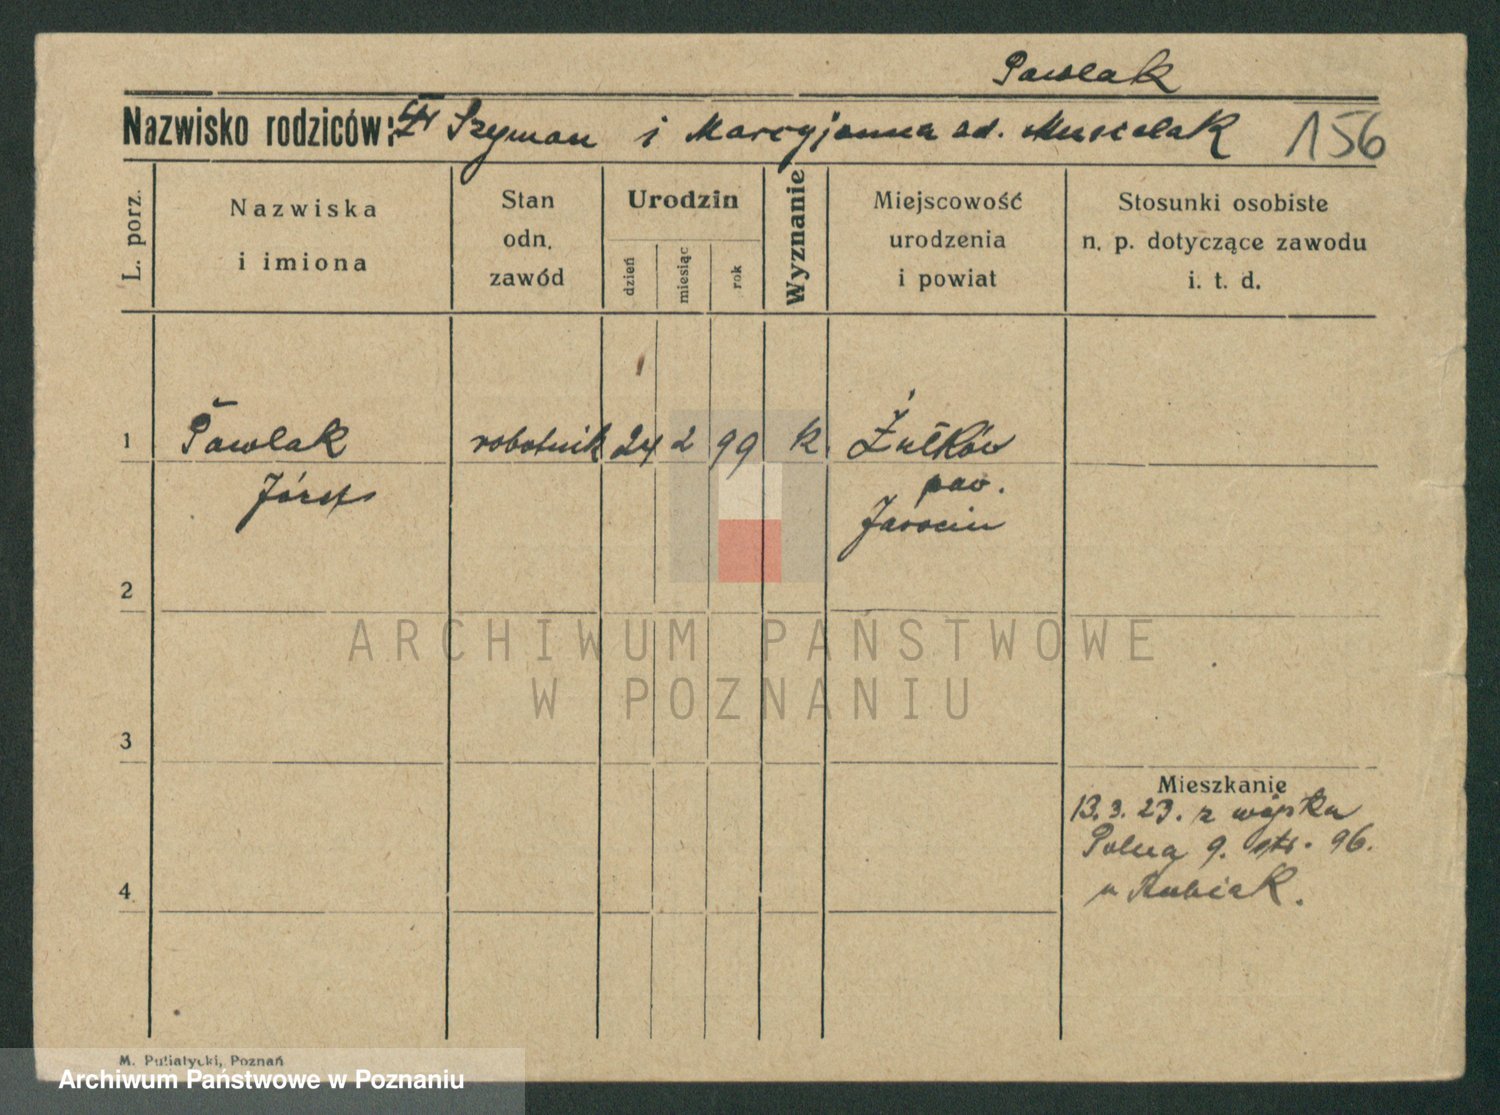 Pawlak
Nazwisko rodziców: Szyman i Marcyjanna 156
L. porz.
Nazwiska
i imiona
Stan
odn.
zawód
Urodzin
dzień
miesiąc
rok
Wyznanie
Miejscowość
urodzenia
i powiat
Stosunki osobiste
n. p. dotyczące zawodu
i. t. d.
1 Pawlak robotnik 24 2 99 k. Żułków
Józef pow.
Jarocin
2
3
4
Mieszkanie
13. 3. 23. z wojska
Polna 9. 96.
u Kubiak.
ARCHIWUM PAŃSTWOWE
W POZNANIU
M. Putiatycki, Poznań
Archiwum Państwowe w Poznaniu